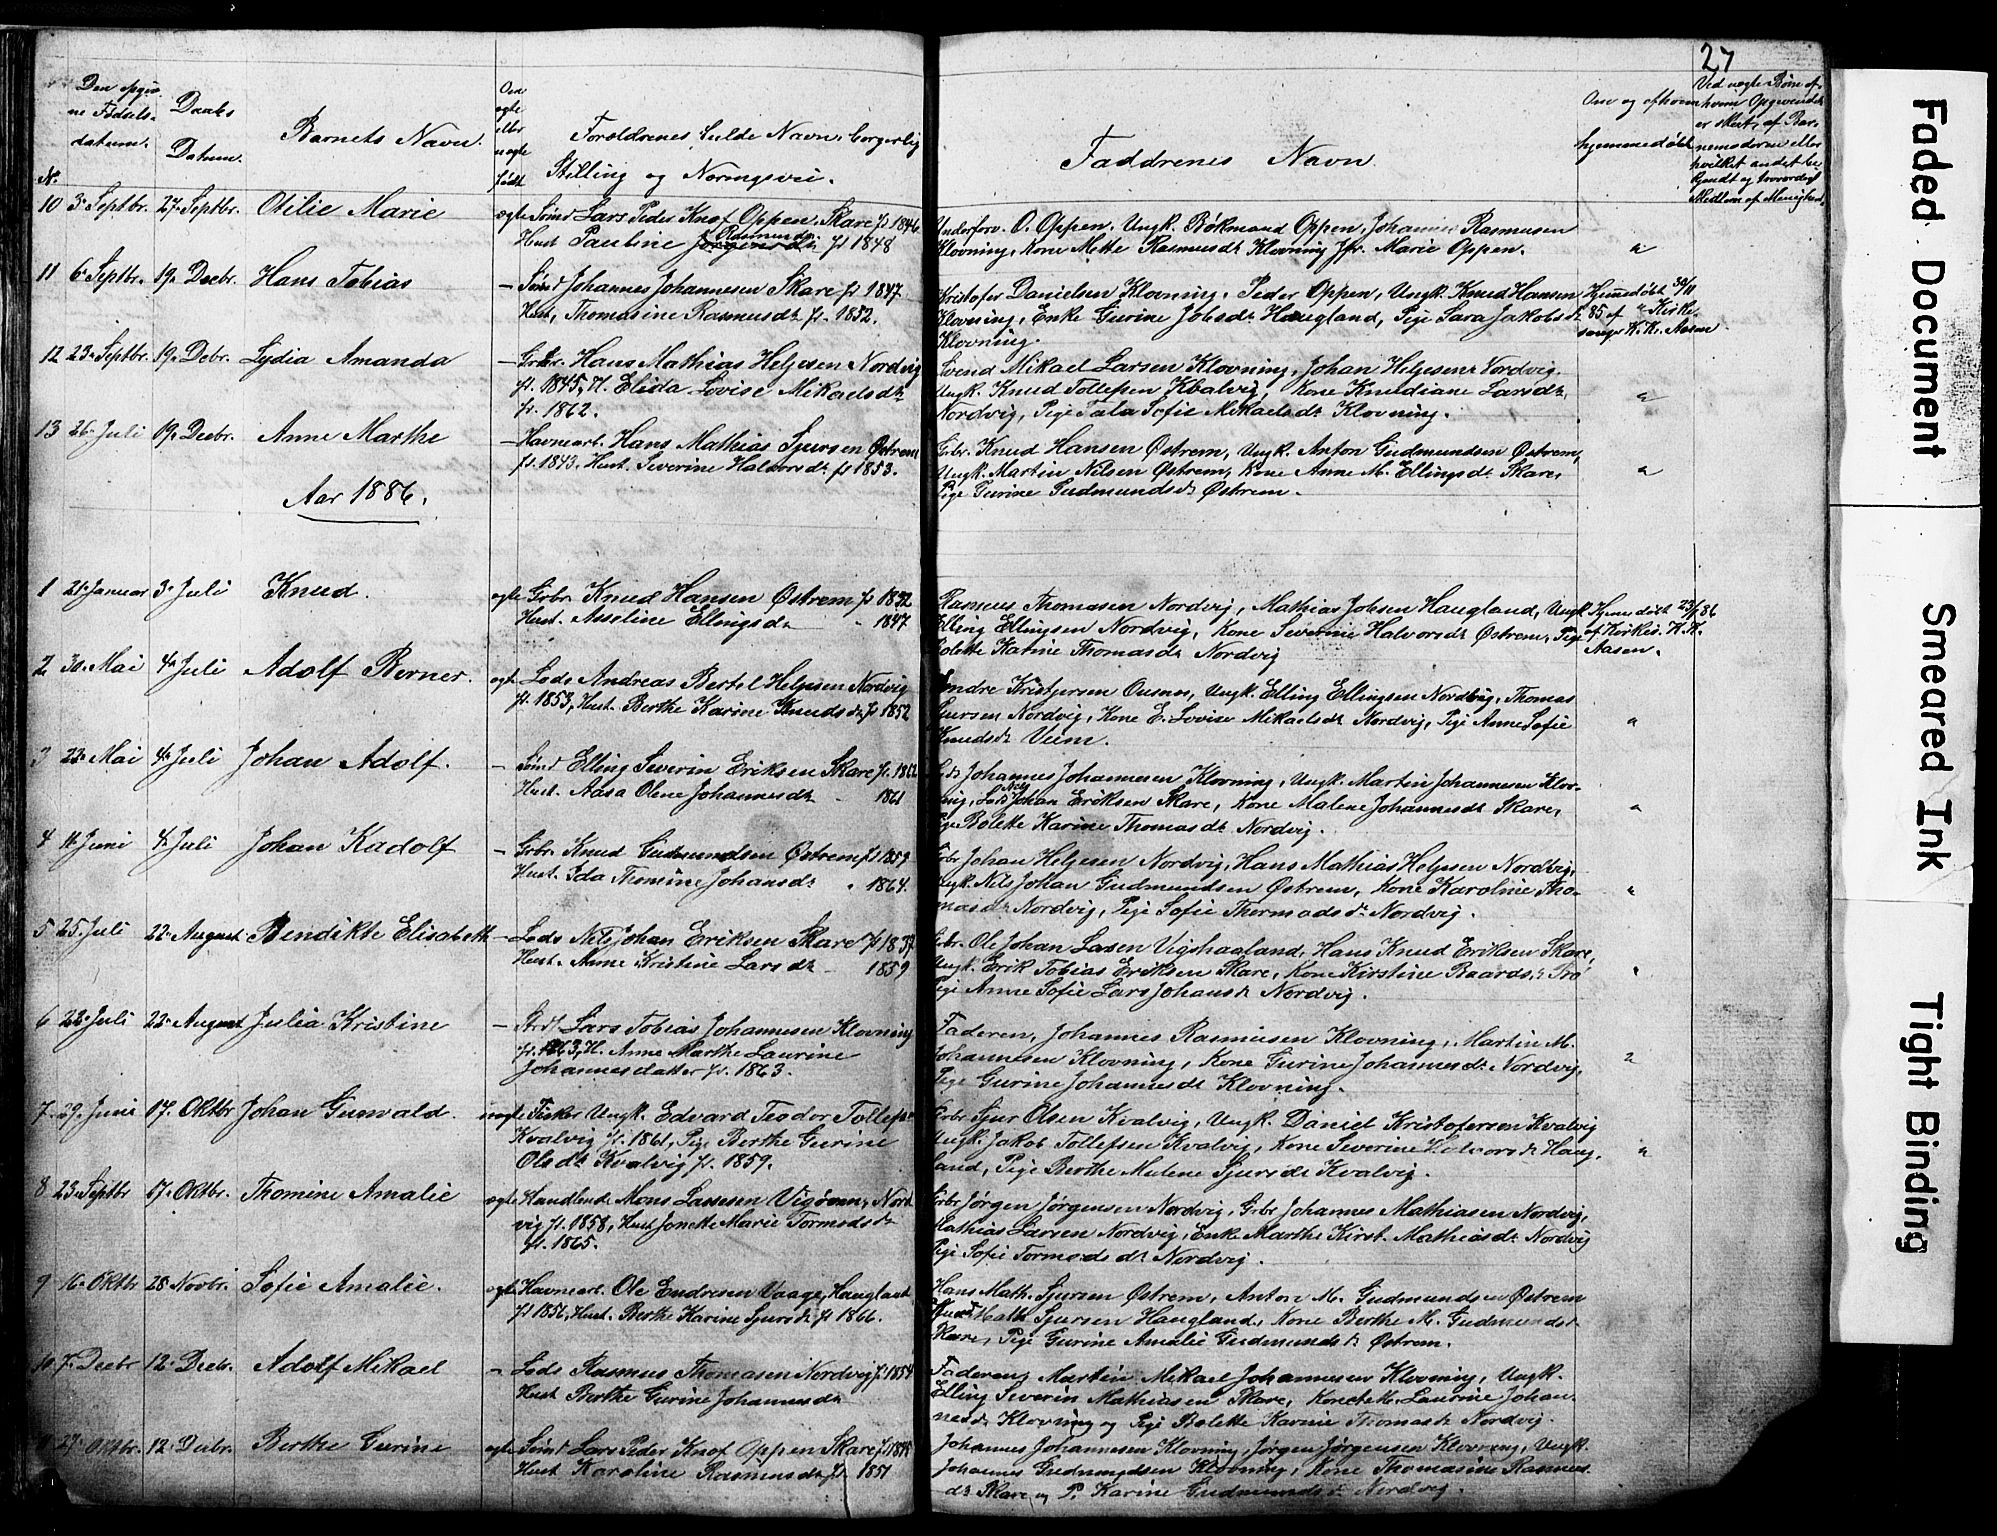 27
Den opgiv-
ne Fødsels-
datum.
Daabs
Datum.
Barnets Navn.
Om
ægte
eller
uægte
født
Forældrenes fulde Navn, borgerlig
Stilling og Næringsvei.
No.
Faddrenes Navn.
Om og af hvem
hjemmedøbt
Ved uægte Børn af
hvem Opgivendet
er skeet, af Bar-
nemoderen eller
hvilket andet be-
kjendt og troværdigt
Medlem af Menighed.
10 3. Septbr. 27. Septbr. Otilie Marie ægte Sømd Lars Peder Knof Oppen Skare f. 1846.
Hust Pauline Rasmusdr. f. 1848
Underforv. O. Oppen, Ungk. Bøkmand Oppen, Johannes Rasmusen
Klovning, Kone Mette Rasmusdr. Klovning Jfr. Marie Oppen. "
11 6. Septbr. 19. Decbr. Hans Tobias — Sømd Johannes Johannesen Skare f. 1847
Hust, Thomasine Rasmusdr. f. 1852.
Kristofer Danielsen Klovning, Peder Oppen, Ungk. Knud Hansen
Klovning, Enke Gurine Jobsdr. Haugland, Pige Sara Jakobsdr.
Klovning.
Hjemedøbt 30/11
85 af Kirke-
sanger K. K. Aasen.
12 23. Septbr. 19. Debr. Lydia Amanda — Grbr. Hans Mathias Helgesen Nordvig
f. 1845, H. Elida Lovise Mikaelsdr.
f. 1862.
Svend Mikael Larsen Klovning, Johan Helgesen Nordvig.
Ungk. Knud Tollefsen Kvalvig, Kone Knudiane Larsdr.
Nordvig, Pige Tala Sofie Mikaelsdr. Klovning. "
13 26. Juli 19. Decbr. Anne Marthe — Havnearb. Hans Mathias Sjursen Østrem
f. 1843. Hust. Severine Halvorsdr. f. 1853.
Grbr. Knud Hansen Østrem, Ungk. Anton Gudmundsen Østrem,
Ungk. Martin Nilsen Østrem, Kone Anne M. Ellingsdr. Skare,
Pige Gurine Gudmundsdr. Østrem. "
Aar 1886.
1 21. Januar 3. Juli Knud. ægte Grbr. Knud Hansen Østrem f. 1832
Hust. Asseline Ellingsdr. " 1847
Rasmus Thomasen Nordvig, Mathias Jobsen Haugland, Ungk.
Elling Ellingsen Nordvig, Kone Severine Halvorsdr. Østrem, Pige
Bolette Karine Thomasdr. Nordvig
Hjemedøbt 23/1 86
af Kirkes. K. K.
Aasen.
2 30. Mai 4. Juli Adolf Berner. ægt. Lods Andreas Bertel Helgesen Nordvig
f. 1853, Hust. Berthe Karine Knudsdr. f. 1852
Endre Kristjersen Ousnes, Ungk. Elling Ellingsen Nordvig, Thomas
Sjursen Nordvig, Kone E. Lovise Mikaelsdr. Nordvig, Pige Anne Sofie
Knudsdr. Veim. "
3 23. Mai 4. Juli Johan Adolf. — Sømd Elling Severin Eriksen Skare f. 1862
Hust. Aasa Olene Johannesdr. " 1861
Johannes Johannesen Klovning, Ungk. Martin Johannesen Klov-
ning, Lods Nils Johan Eriksen Skare, Kone Malene Johannesdr. Skare,
Pige Bolette Karine Thomasdr. Nordvig. "
4 11. Juni 4. Juli Johan Kadolf — Grbr. Knud Gudmundsen Østrem f. 1859
Hust. Ida Thomine Johansdr. " 1864.
Grbr Johan Helgesen Nordvig, Hans Mathias Helgesen Nordvig,
Ungk. Nils Johan Gudmundsen Østrem, Kone Karoline Tho-
masdr. Nordvig, Pige Sofie Thormodsdr. Nordvig. "
5 25. Juli 22. August Bendikte Elisabeth — Lods Nils Johan Eriksen Skare f. 1837
Hust. Anne Kristine Larsdr. — 1839
Grbr. Ole Johan Larsen Vigshagland, Hans Knud Eriksen Skare,
Ungk. Erik Tobias Eriksen Skare, Kone Kirstine Baardsdr.
Pige Anne Sofie Lars Johansdr. Nordvig. "
6 22. Juli 22. August Julia Kristine — Strdr. Lars Tobias Johannesen Klovning
f. 1863, H. Anne Marthe Laurine
Johannesdatter f. 1863.
Faderen, Johannes Rasmusen Klovning, Martin M.
Johannesen Klovning, Kone Gurine Johannesdr. Nordvig,
Pige Gurine Johannesdr. Klovning. "
7 29. Juni 17. Oktbr Johan Gunvald. uægte Fisker Ungk. Edvard Teodor Tollefs.
Kvalvig f. 1861, Pige Berthe Gurine
Olsdr. Kvalvig f. 1859.
Grbr Sjur Olsen Kvalvig, Ungk. Daniel Kristofersen Kvalvig
Ungk. Jakob Tollefsen Kvalvig, Kone Severine Halvorsdr. Haug-
land, Pige Berthe Malene Sjursdr. Kvalvig. "
8 23. Septbr 17. Oktbr. Thomine Amalie ægte Handlende Mons Lassesen Vigøren, Nord-
vig f. 1858, Hust Jonette Marie Tormodsdr.
f. 1865.
Grbr Jørgen Jørgensen Nordvig, Grbr Johannes Mathiasen Nordvig,
Mathias Larsen Nordvig, Enke Marthe Kirst. Mathiasdr. Nordvig
Pige Sofie Tormodsdr. Nordvig.
9 16. Oktbr 28. Novbr. Sofie Amalie. ægte Havnearb. Ole Endresen Vaage, Haugland
f. 1856, Hust. Berthe Karine Sjursdr. f. 1866.
Hans Math. Sjursen Østrem, Anton M. Gudmundsen Østrem
Knud Math Sjursen Haugland, Kone Berthe M. Gudmundsdr.
Skare, Pige Gurine Amalie Gudmundsdr. Østrem.
10 7. Decbr 12. Decbr. Adolf Mikael — Lods Rasmus Thomasen Nordvig f. 1854
Hust Berthe Gurine Johannesdr.
Faderen, Martin Mikael Johannesen Klovning, Ungk.
Elling Severin Mathiasen Skare, Kone Laurine Johan-
nesdr. Klovning og Pige Bolette Karine Thomasdr. Nordvig.
11 27. Oktbr. 12. Decbr. Berthe Gurine ægte Sømd Lars Peder Knof Oppen Skare f. 1845
Hust Karoline Rasmusdr. f. 1851
Johannes Johannesen Klovning, Jørgen Jørgensen Klovning, Ungk.
Johannes Gudmundsen Klovning, Kone Thomasine Rasmus-
dr. Skare og P. Karine Gudmundsdr. Nordvig.
Faded Document
Smeared Ink
Tight Binding